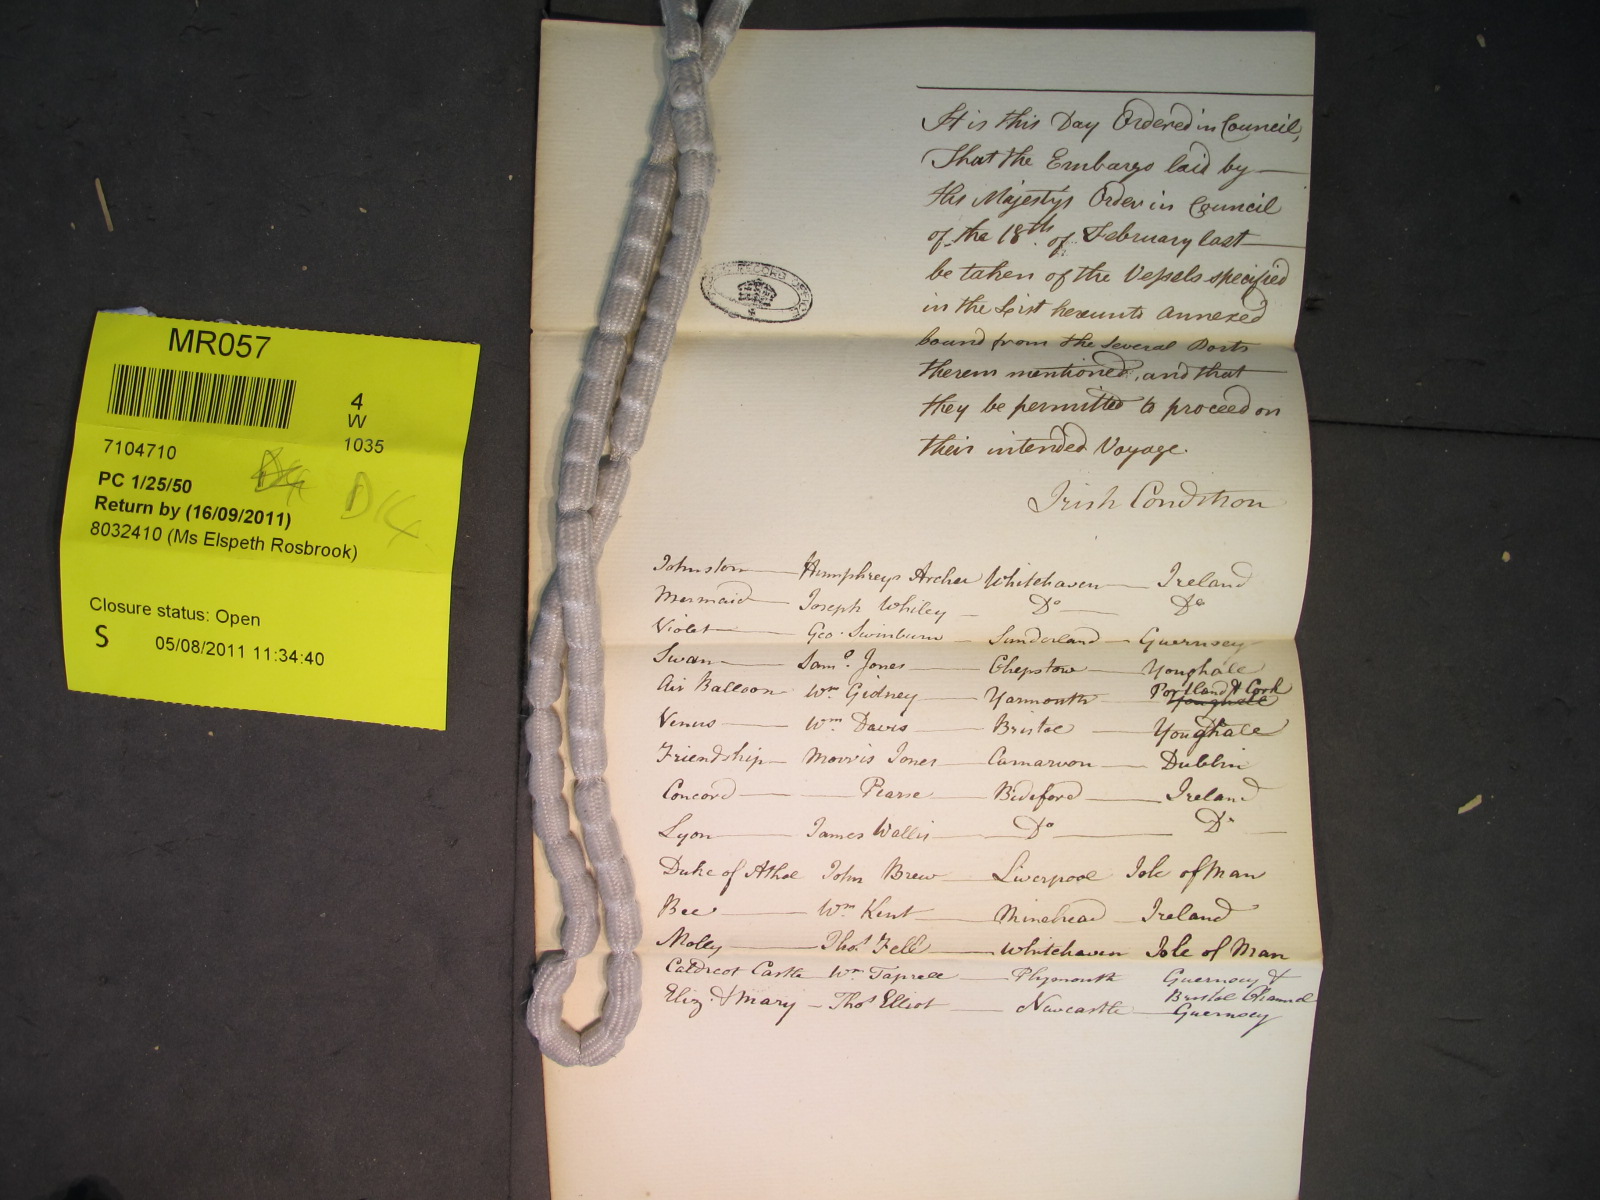 MR057
4
W
1035
7104710
PC 1/25/50
Return by (16/09/2011)
8032410 (Ms Elspeth Rosbrook)
Closure status: Open
S 05/08/2011 11:34:40
RECORD OFFICE
It is this Day Ordered in Council,
That the Embargo laid by
His Majestys Order in Council
of the 18th. of February last
be taken of the Vessels specified
in the List hereunto annexed
bound from the several Ports
therein mentioned, and that
they be permitted to proceed on
their intended Voyage.
Irish Condition
Johnston Humphreys Archer Whitehaven Ireland
Mermaid Joseph Whiley Do Do
Violet Geo. Swinburn Sunderland Guernsey
Swan Saml. Jones Chepstow Youghall
Air Balloon Wm Gidney Yarmouth Portland & Cork
Youghall
Venus Wm. Davis Bristol Youghall
Friendship Morris Jones Carnarvon Dublin
Concord Pearse Bideford Ireland
Lyon James Wallis Do Do
Duke of Athol John Brew Liverpool Isle of Man
Bee Wm Kent Minehead Ireland
Molly Thos. Fell Whitehaven Isle of Man
Caldicot Castle Wm Taprell Plymouth Guernsey &
Bristol Channel
Eliz. & Mary Thos Elliot Newcastle Guernsey